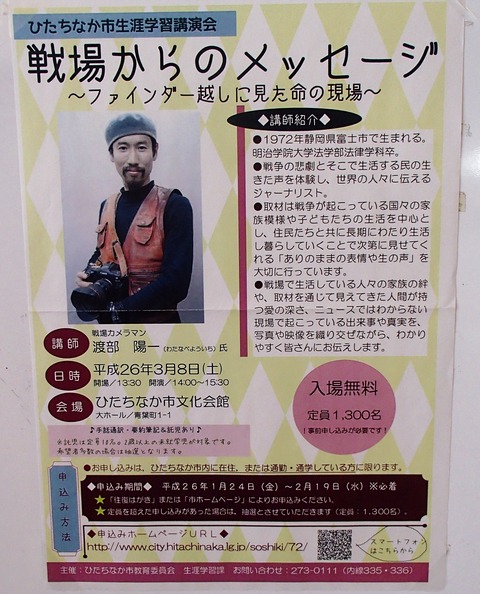 ひたちなか市生涯学習講演会
戦場からのメッセージ
～ファインダー越しに見た命の現場～
◆講師紹介◆
●1972年静岡県富士市で生まれる。
明治学院大学法学部法律学科卒。
●戦争の悲劇とそこで生活する民の生
きた声を体験し、世界の人々に伝える
ジャーナリスト。
●取材は戦争が起こっている国々の家
族模様や子どもたちの生活を中心と
し、住民たちと共に長期にわたり生活
し暮らしていくことで次第に見せてく
れる「ありのままの表情や生の声」を
大切に行っています。
●戦場で生活している人々の家族の絆
や、取材を通じて見えてきた人間が持
つ愛の深さ、ニュースではわからない
現場で起こっている出来事や真実を、
写真や映像を織り交ぜながら、わかり
やすく皆さんにお伝えします。
講師
戦場カメラマン
渡部 陽一（わたなべよういち）氏
日時
平成26年3月8日（土）
開場／13:30 開演／14:00～15:30
会場
ひたちなか市文化会館
大ホール／青葉町1-1
♪手話通訳・要約筆記＆託児あり♪
※託児は定員10名。2歳以上の未就学児が対象です。
希望者多数の場合は抽選となります。
入場無料
定員1,300名
！事前申し込みが必要です！
申込み方法
●お申し込みは、ひたちなか市内に在住、または通勤・通学している方に限ります。
◆申込み期間◆ 平成26年1月24日（金）～2月19日（水）※必着
★「往復はがき」または「市ホームページ」によりお申込みください。
★定員を超えた申し込みがあった場合は、抽選とさせていただきます（定員：1,300名）。
◆申込みホームページURL◆
http://www.city.hitachinaka.lg.jp/soshiki/72/
スマートフォン
はこちらから
主催：ひたちなか市教育委員会 生涯学習課 お問い合わせ：273-0111（内線335・336）